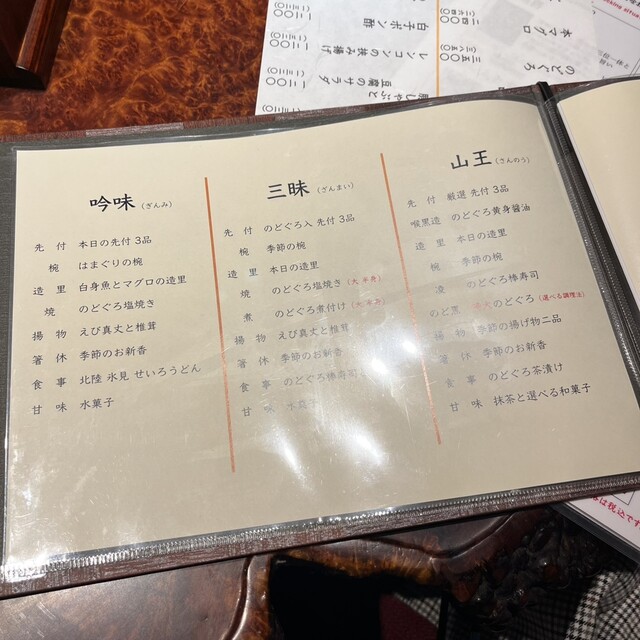 吟味（ぎんみ）
先付 本日の先付 3品
椀 はまぐりの椀
造里 白身魚とマグロの造里
焼 のどぐろ塩焼き
揚物 えび真丈と椎茸
箸休 季節のお新香
食事 北陸 氷見 せいろうどん
甘味 水菓子
三昧（ざんまい）
先付 のどぐろ入 先付 3品
椀 季節の椀
造里 本日の造里
焼 のどぐろ塩焼き（大 半身）
煮 のどぐろ煮付け（大 半身）
揚物 えび真丈と椎茸
箸休 季節のお新香
食事 のどぐろ棒寿司
甘味 水菓子
山王（さんのう）
先付 厳選 先付 3品
喉黒造 のどぐろ黄身醤油
造里 本日の造里
椀 季節の椀
凌 のどぐろ棒寿司
のど黒 のどぐろ（選べる調理法）
揚物 季節の揚げ物二品
箸休 季節のお新香
食事 のどぐろ茶漬け
甘味 抹茶と選べる和菓子
のどぐろ
本マグロ
白子ポン酢
レンコンの挟み揚げ
豆腐のサラダ
は税込です